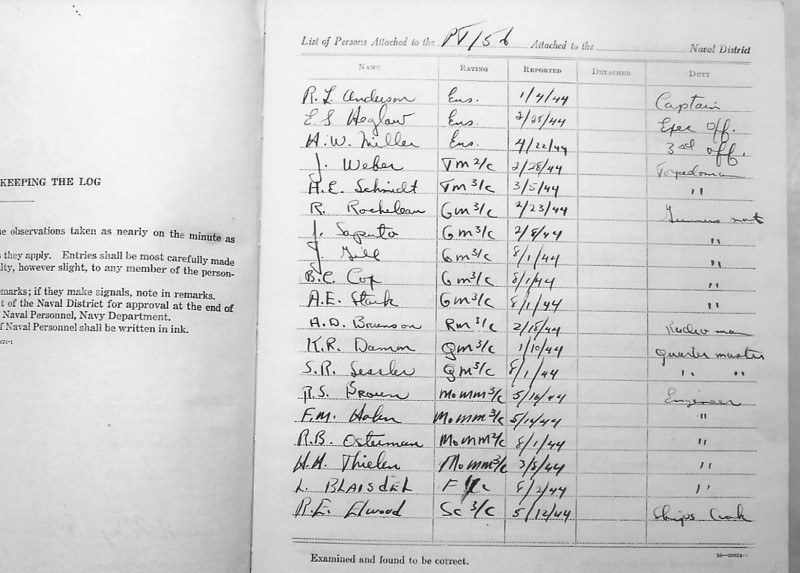 KEEPING THE LOG
e observations taken as nearly on the minute as
they apply. Entries shall be most carefully made
lty, however slight, to any member of the person-
marks; if they make signals, note in remarks.
t of the Naval District for approval at the end of
Naval Personnel, Navy Department.
f Naval Personnel shall be written in ink.
List of Persons Attached to the PT/56 Attached to the Naval District
NAME RATING REPORTED DETACHED DUTY
R. L. Anderson Ens. 1/4/44 Captain
E S Heglaw Ens. 2/28/44 Exec Off.
H. W. Miller Ens. 4/22/44 3rd off.
J. Weber Tm 2/c 2/28/44 Torpedoman
H. E. Schmidt Tm 3/c 3/5/44 "
R. Rocheleau Gm 3/c 2/23/44 Gunners mate
J. Saputo Gm 3/c 2/8/44 "
J. Gill Gm 3/c 8/1/44 "
B. C. Cop Gm 3/c 8/1/44 "
A. E. Stark Gm 3/c 8/1/44 "
A. D. Brunson Rm 3/c 2/18/44 Radio man
K. R. Damon Qm 3/c 1/10/44 quarter master
S. R. Sessler Qm 3/c 8/1/44 " "
R. S. Brown MoMM 3/c 5/14/44 Engineer
F. M. Hahn MoMM 3/c 5/14/44 "
R. B. Osterman MoMM 2/c 8/1/44 "
H. H. Thielen MoMM 3/c 3/8/44 "
L. BLAISDEL F /c 8/2/44 "
R. E. Elwood Sc 3/c 5/12/44 Ships Cook
Examined and found to be correct.